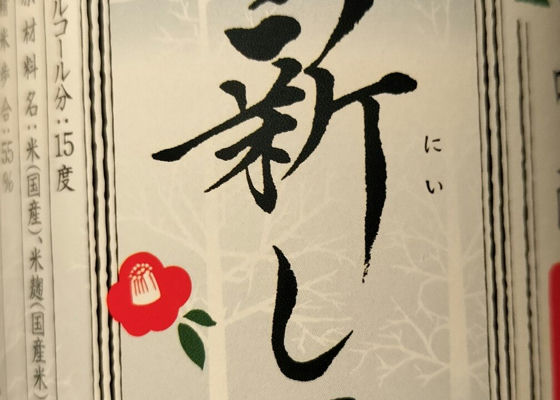 新し
にい
ルコール分:15度
原材料名:米(国産)、米麹(国産米)
米歩合:55%